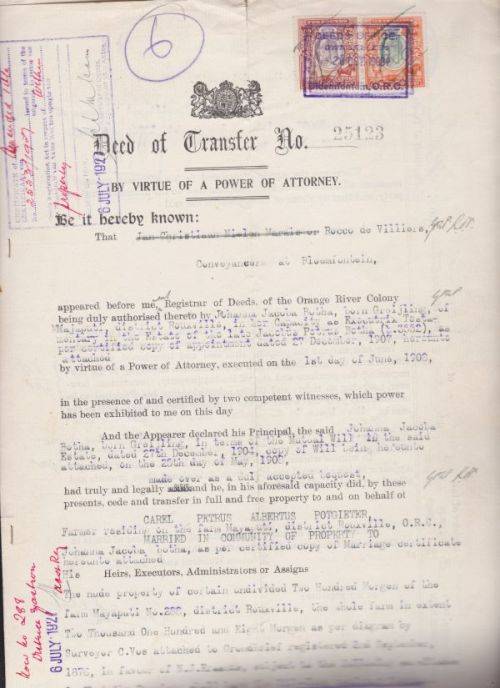 6
DEEDS OFFICE
Bloemfontein, O.R.C.
6 JULY 1927
Deed of Transfer No. 25123
BY VIRTUE OF A POWER OF ATTORNEY.
Be it hereby known:
That Jan Christiaan Nielen Marais or Rocco de Villiers,
Conveyancers at Bloemfontein,
appeared before me, Registrar of Deeds, of the Orange River Colony
being duly authorised thereto by Johanna Jacoba Botha, born Greijling, of
Mayaputi, district Rouxville, in her Capacity as Executrix Testa-
mentary in the Estate of the late Jacobus Petrus Botha
per certified copy of appointment dated 27 December, 1907, hereunto
attached
by virtue of a Power of Attorney, executed on the 1st day of June, 1908,
in the presence of and certified by two competent witnesses, which power
has been exhibited to me on this day
And the Appearer declared his Principal, the said Johanna Jacoba
Botha, born Greijling, in terms of the Mutual Will in the said
Estate, dated 27th December, 1904, copy of Will being hereunto
attached, on the 25th day of May, 1908,
made over as a duly accepted bequest,
had truly and legally and he, in his aforesaid capacity did, by these
presents, cede and transfer in full and free property to and on behalf of
CAREL PETRUS ALBERTUS POTGIETER,
Farmer residing on the farm Mayaputi, district Rouxville, O.R.C.,
MARRIED IN COMMUNITY OF PROPERTY TO
Johanna Jacoba Botha, as per certified copy of Marriage certificate
hereunto attached
His Heirs, Executors, Administrators or Assigns
The nude property of certain undivided Two Hundred Morgen of the
farm Mayaputi No.288, district Rouxville, the whole farm in extent
Two Thousand One Hundred and Eight Morgen as per diagram by
Surveyor C.Vos attached to Groundbrief registered 2nd September,
1876, in favour of
now no 288
District Zastron
6 JULY 1927